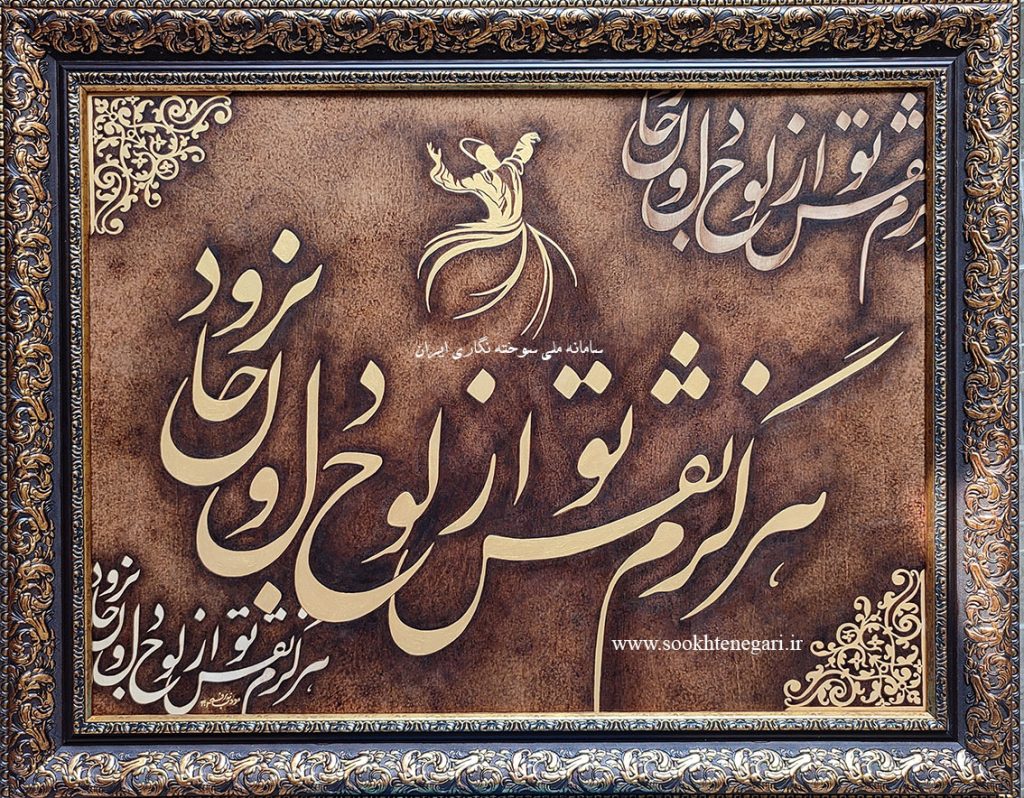 هرگزم نقش تو از لوح دل و جا
سامانه ملی سوخته نگاری ایران
هرگزم نقش تو از لوح دل و جان نرود
هرگزم نقش تو از لوح دل و جان نرود
www.sookhtenegari.ir